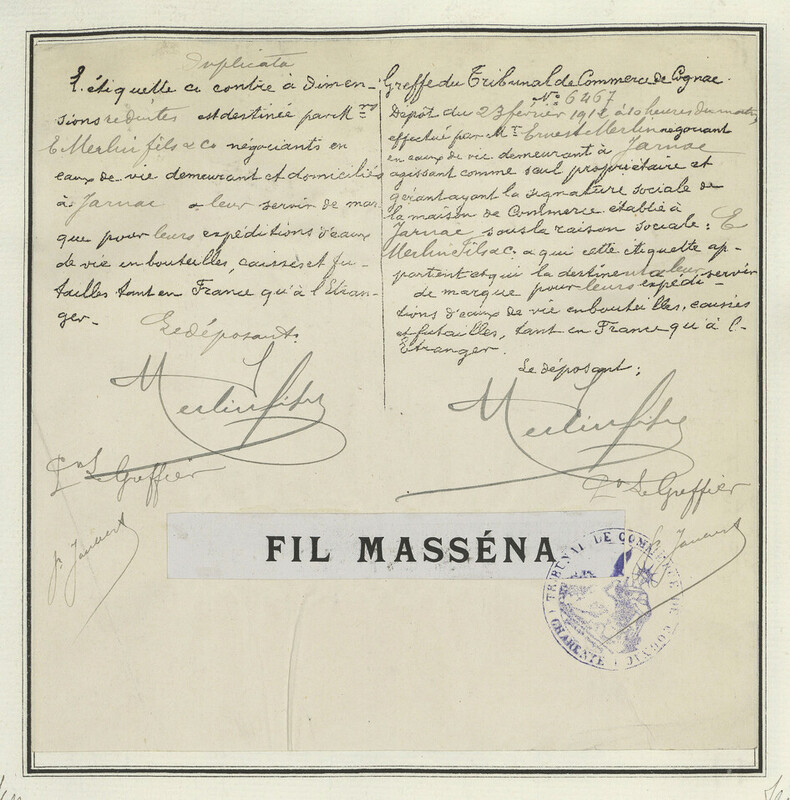 Duplicata
L'étiquette ci contre à Dimen-
sions réduites est destinée par Mrs
E Merlin fils & Co négociants en
eaux de vie demeurant et domiciliés
à Jarnac a leur servir de mar
que pour leurs expéditions d'eaux
de vie en bouteilles, caisses et fu-
tailles tant en France qu'à l'Etran-
ger-
Le déposant.
Merlin fils
Le Greffier
Greffe du Tribunal de Commerce de Cognac.
No 6467
Dépôt du 23 février 1912 à 10 heures du matin,
effectué par Mr. Ernest Merlin negociant
en eaux de vie demeurant à Jarnac
agissant comme seul propriétaire et
gérant ayant la signature sociale de
la maison de Commerce établie à
Jarnac sous la raison sociale: E
Merlin Fils & C. a qui cette étiquette ap-
partient et qui la destinent a leur servir
de marque pour leurs expédi-
tions d'eaux de vie en bouteilles, caisses
et futailles, tant en France qu'à l'-
Etranger.
Le déposant;
Merlin fils
Le Greffier
FIL MASSÉNA
TRIBUNAL DE COMMERCE DE COGNAC
CHARENTE